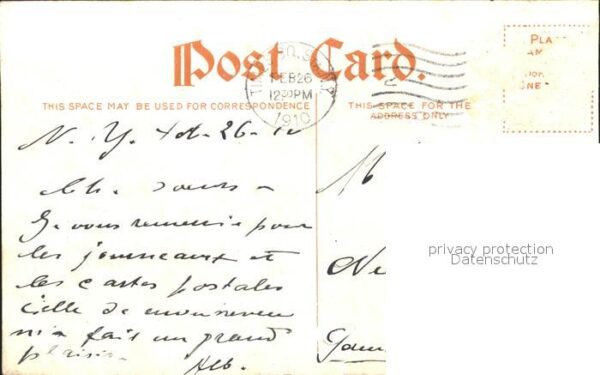 Post Card.
THIS SPACE MAY BE USED FOR CORRESPONDENCE
THIS SPACE FOR THE
ADDRESS ONLY
PLA
AM
FOR
ONE
TIMES SQ. STA.
FEB 26
12 30 PM
1910
N. Y. Feb. 26-10
Ch. soeurs -
Je vous remercie pour
les journeaux et
les cartes postales
Celle de mon neveu
m'a fait un grand
plaisir
Alb.
M
Ne
privacy protection
Datenschutz